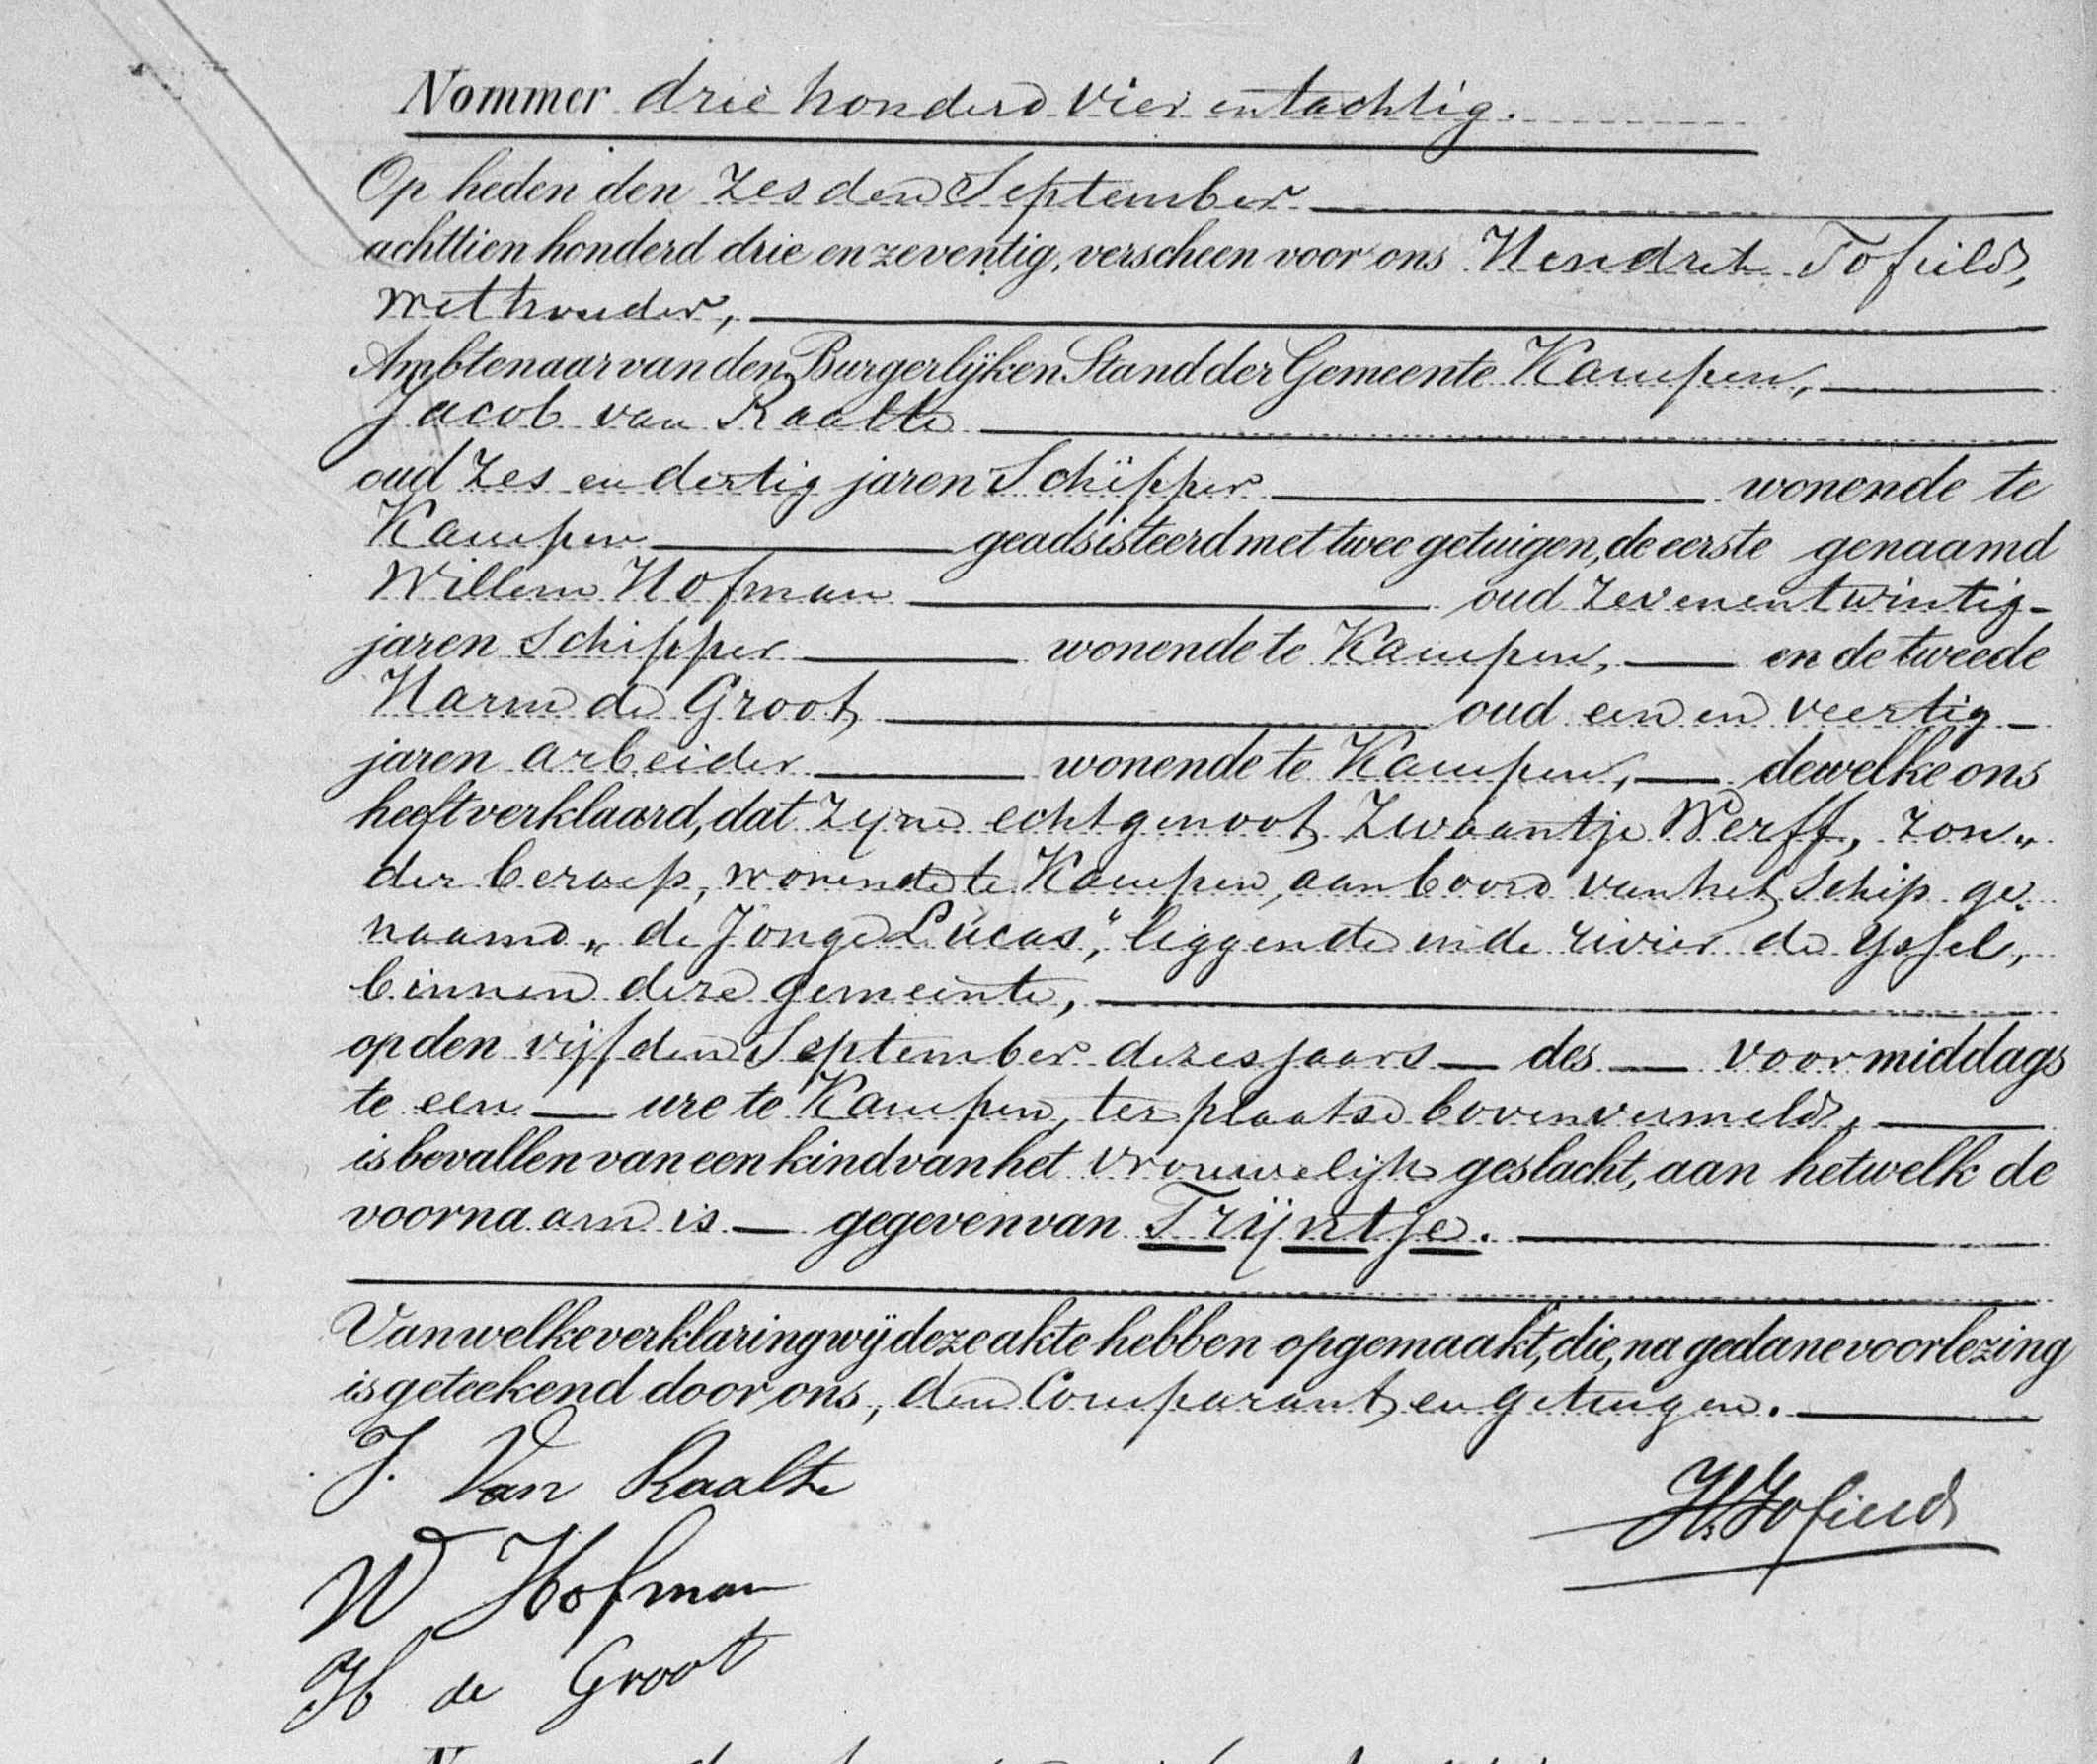 Nommer drie honderd vier en tachtig.
Op heden den zesden September
achttien honderd drie en zeventig, verscheen voor ons Hendrik Tofield,
wethouder,
Ambtenaar van den Burgerlijken Stand der Gemeente Kampen,
Jacob van Raalte
oud zes en dertig jaren Schipper wonende te
Kampen geadsisteerd met twee getuigen, de eerste genaamd
Willem Hofman oud zevenentwintig
jaren Schipper wonende te Kampen, en de tweede
Harm de Groot oud een en veertig
jaren arbeider wonende te Kampen, dewelke ons
heeft verklaard, dat zijne echtgenoot Zwaantje Werff, zon„
der beroep, wonende te Kampen, aan boord van het Schip ge„
naamd „de Jonge Lucas", liggende in de rivier de Yssel,
binnen deze gemeente,
op den vijfden September dezes jaars des voormiddags
te een ure te Kampen, ter plaatse bovenvermeld,
is bevallen van een kind van het vrouwelijk geslacht, aan hetwelk de
voornaam is gegeven van Trijntje.
Van welke verklaring wij deze akte hebben opgemaakt, die, na gedane voorlezing
is geteekend door ons, den Comparant en getuigen.
J. Van Raalte
H. Tofield
W Hofman
H de Groot